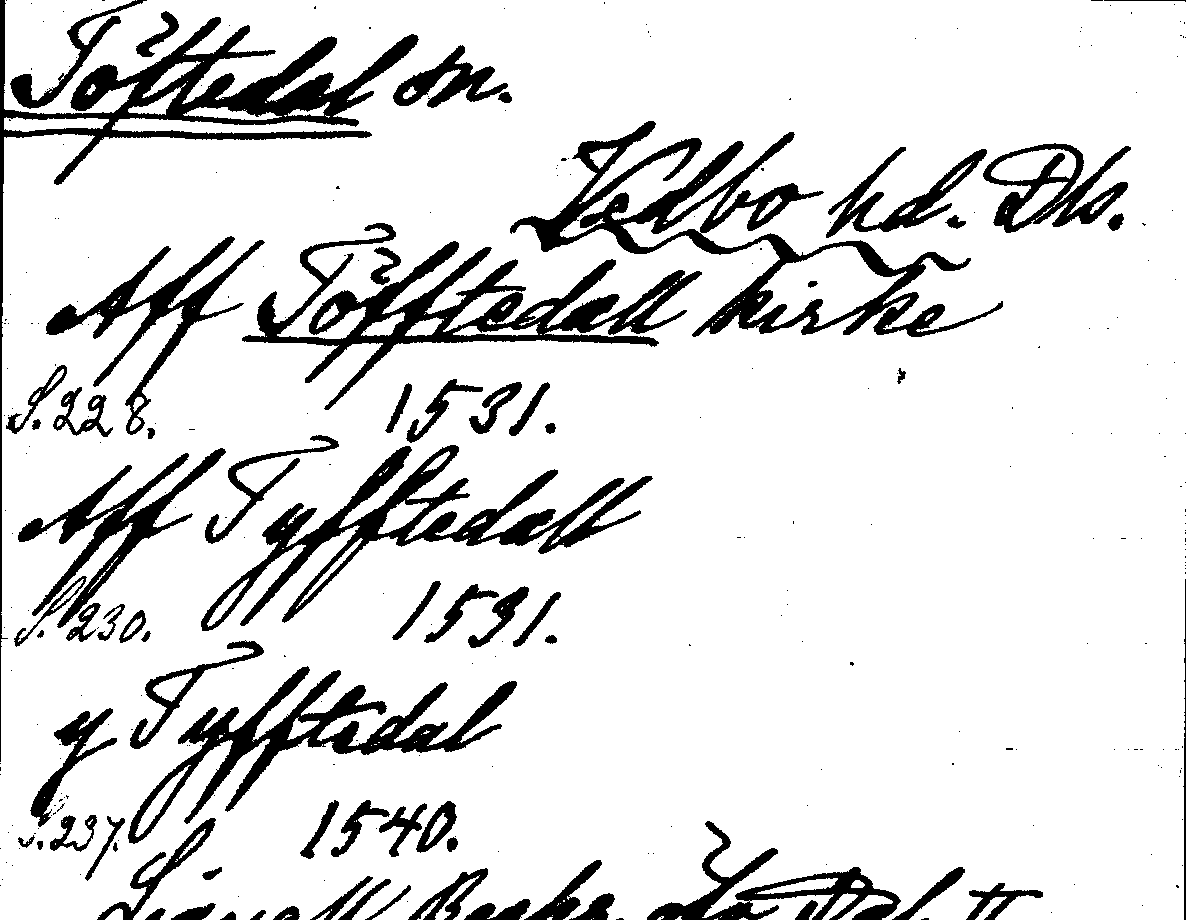 Töftedal sn.
Vedbo hd. Dls.
Aff Töfftedall kirke
S. 228. 1531.
Aff Tyfftedall
S. 230. 1531.
y Tyfftedal
S. 237. 1540.
Lignell Beskr. öfv. Dal II